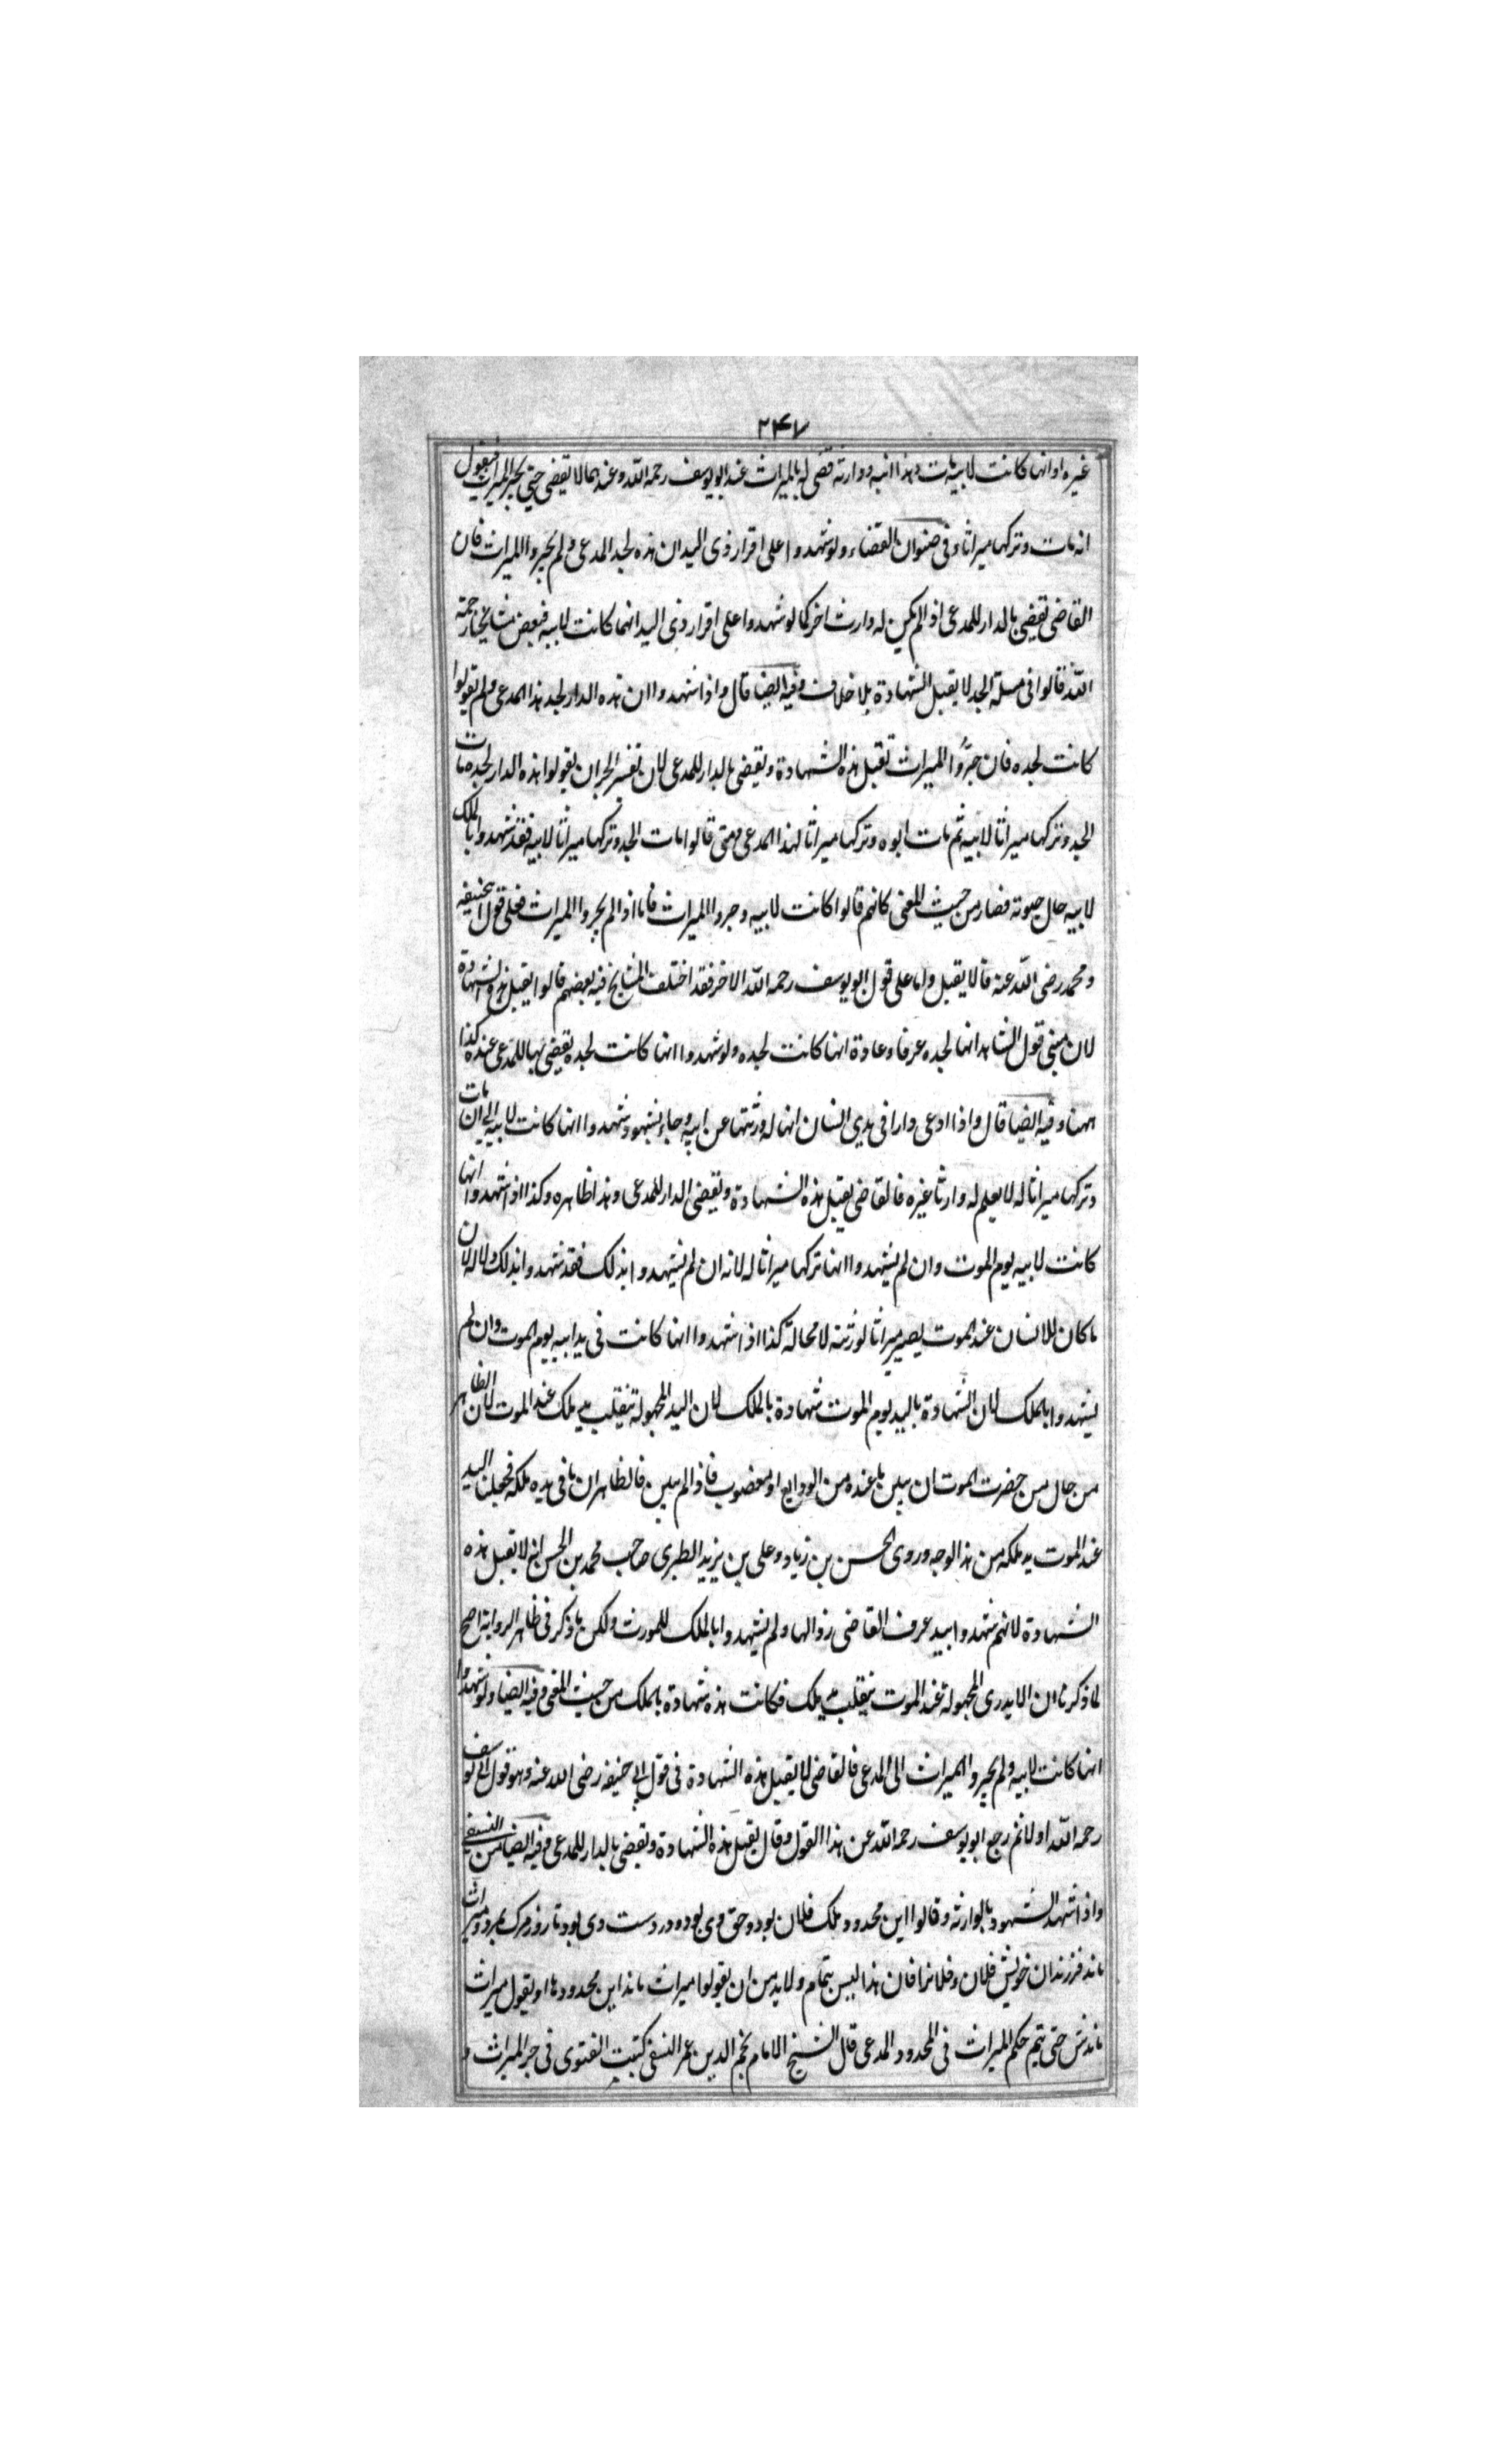 ۲۴۷
غيره او انها كانت لابيه مات وهذا ابنه ووارثه قضى له بالميراث عند ابو يوسف رحمه الله وعندهما لا يقضى حتى يجر الميراث فيقول
انه مات وتركها ميراثا وفى صنوان القضاء ولو شهدوا على اقرار ذى اليد ان هذه لجد المدعى ولم يجروا الميراث فان
القاضى يقضى بالدار للمدعى اذا لم يكن له وارث اخر كما لو شهدوا على اقرار ذى اليد انها كانت لابيه فبعض مشايخنا رحمة
الله قالوا فى مسئلة الجد لا يقبل الشهادة بلا خلاف وفيه ايضا قال واذا شهدوا ان هذه الدار لجد هذا المدعى ولم يقولوا
كانت لجده فان جرّوا الميراث تقبل هذه الشهادة ويقضى بالدار للمدعى لان تفسير الجر ان يقولوا هذه الدار لجده مات
الجد وتركها ميراثا لابيه ثم مات ابوه وتركها ميراثا لهذا المدعى ومتى قالوا مات الجد وتركها ميراثا لابيه فقد شهدوا بالملك
لابيه حال حيوته فصار من حيث المعنى كانهم قالوا كانت لابيه وجروا الميراث فاما اذا لم يجروا الميراث فعلى قول ابيحنيفه
ومحمد رضى الله عنه قالا يقبل واما على قول ابو يوسف رحمه الله الاخر فقد اختلف المشايخ فيه بعضهم قالوا يقبل هذه الشهادة
لان مبنى قول الشاهد انها لجده عرفا وعادة انها كانت لجده ولو شهدوا انها كانت لجده يقضى بها للمدعى عنده كذا
ههنا وفيه ايضا قال واذا ادعى دارا فى يدى انسان انها له ورثتها عن ابيه وجاء بشهود شهدوا انها كانت لابيه الى ان مات
وتركها ميراثا له لا يعلم له وارثا غيره فالقاضى يقبل هذه الشهادة ويقضى الدار للمدعى وهذا ظاهره وكذا اذا شهدوا انها
كانت لابيه يوم الموت وان لم يشهدوا انها تركها ميراثا له لانه ان لم يشهدوا بذلك فقد شهدوا بذلك دلالة لان
ما كان للانسان عند الموت يصير ميراثا لورثته لا محالة كذا اذا شهدوا انها كانت فى يد ابيه يوم الموت وان لم
يشهدوا بالملك لان الشهادة باليد يوم الموت شهادة بالملك لان اليد المجهولة تنقلب يد ملك عند الموت لان الظاهر
من حال من حضرت الموت ان يبين ما عنده من الودايع او مغصوب فاذا لم يبين فالظاهر ان ما فى يده ملكه فجعلنا اليد
عند الموت يد ملكه من هذا الوجه وروى الحسن بن زياد وعلى بن يزيد الطبرى صاحب محمد بن الحسن انه لا يقبل هذه
الشهادة لانهم شهدوا بيد عرف القاضى زوالها ولم يشهدوا بالملك للمورث ولكن ما ذكر فى ظاهر الرواية اصح
لما ذكرنا ان الايدى المجهولة عند الموت ينقلب يد ملك فكانت هذه شهادة بالملك من حيث المعنى وفيه ايضا ولو شهدوا
انها كانت لابيه ولم يجروا الميراث الى المدعى فالقاضى لا يقبل هذه الشهادة فى قول ابى حنيفه رضى الله عنه وهو قول ابى يوسف
رحمه الله اولا ثم رجع ابو يوسف رحمه الله عن هذا القول وقال يقبل هذه الشهادة ويقضى بالدار للمدعى وفيه ايضا من النسفى
واذا شهد الشهود بالوارثه وقالوا اين محدود ملك فلان بود وحق وى بود ودر دست وى بود تا روز مرك بمرد وميراث
ماند فرزندان خويش فلان وفلانرا فان هذا ليس بتمام ولا بد من ان يقولوا ميراث ماند اين محدودها او يقول ميراث
ماندش حتى يتم حكم الميراث فى المحدود المدعى قال الشيخ الامام نجم الدين عمر النسفى كتبت الفتوى فى جر الميراث و